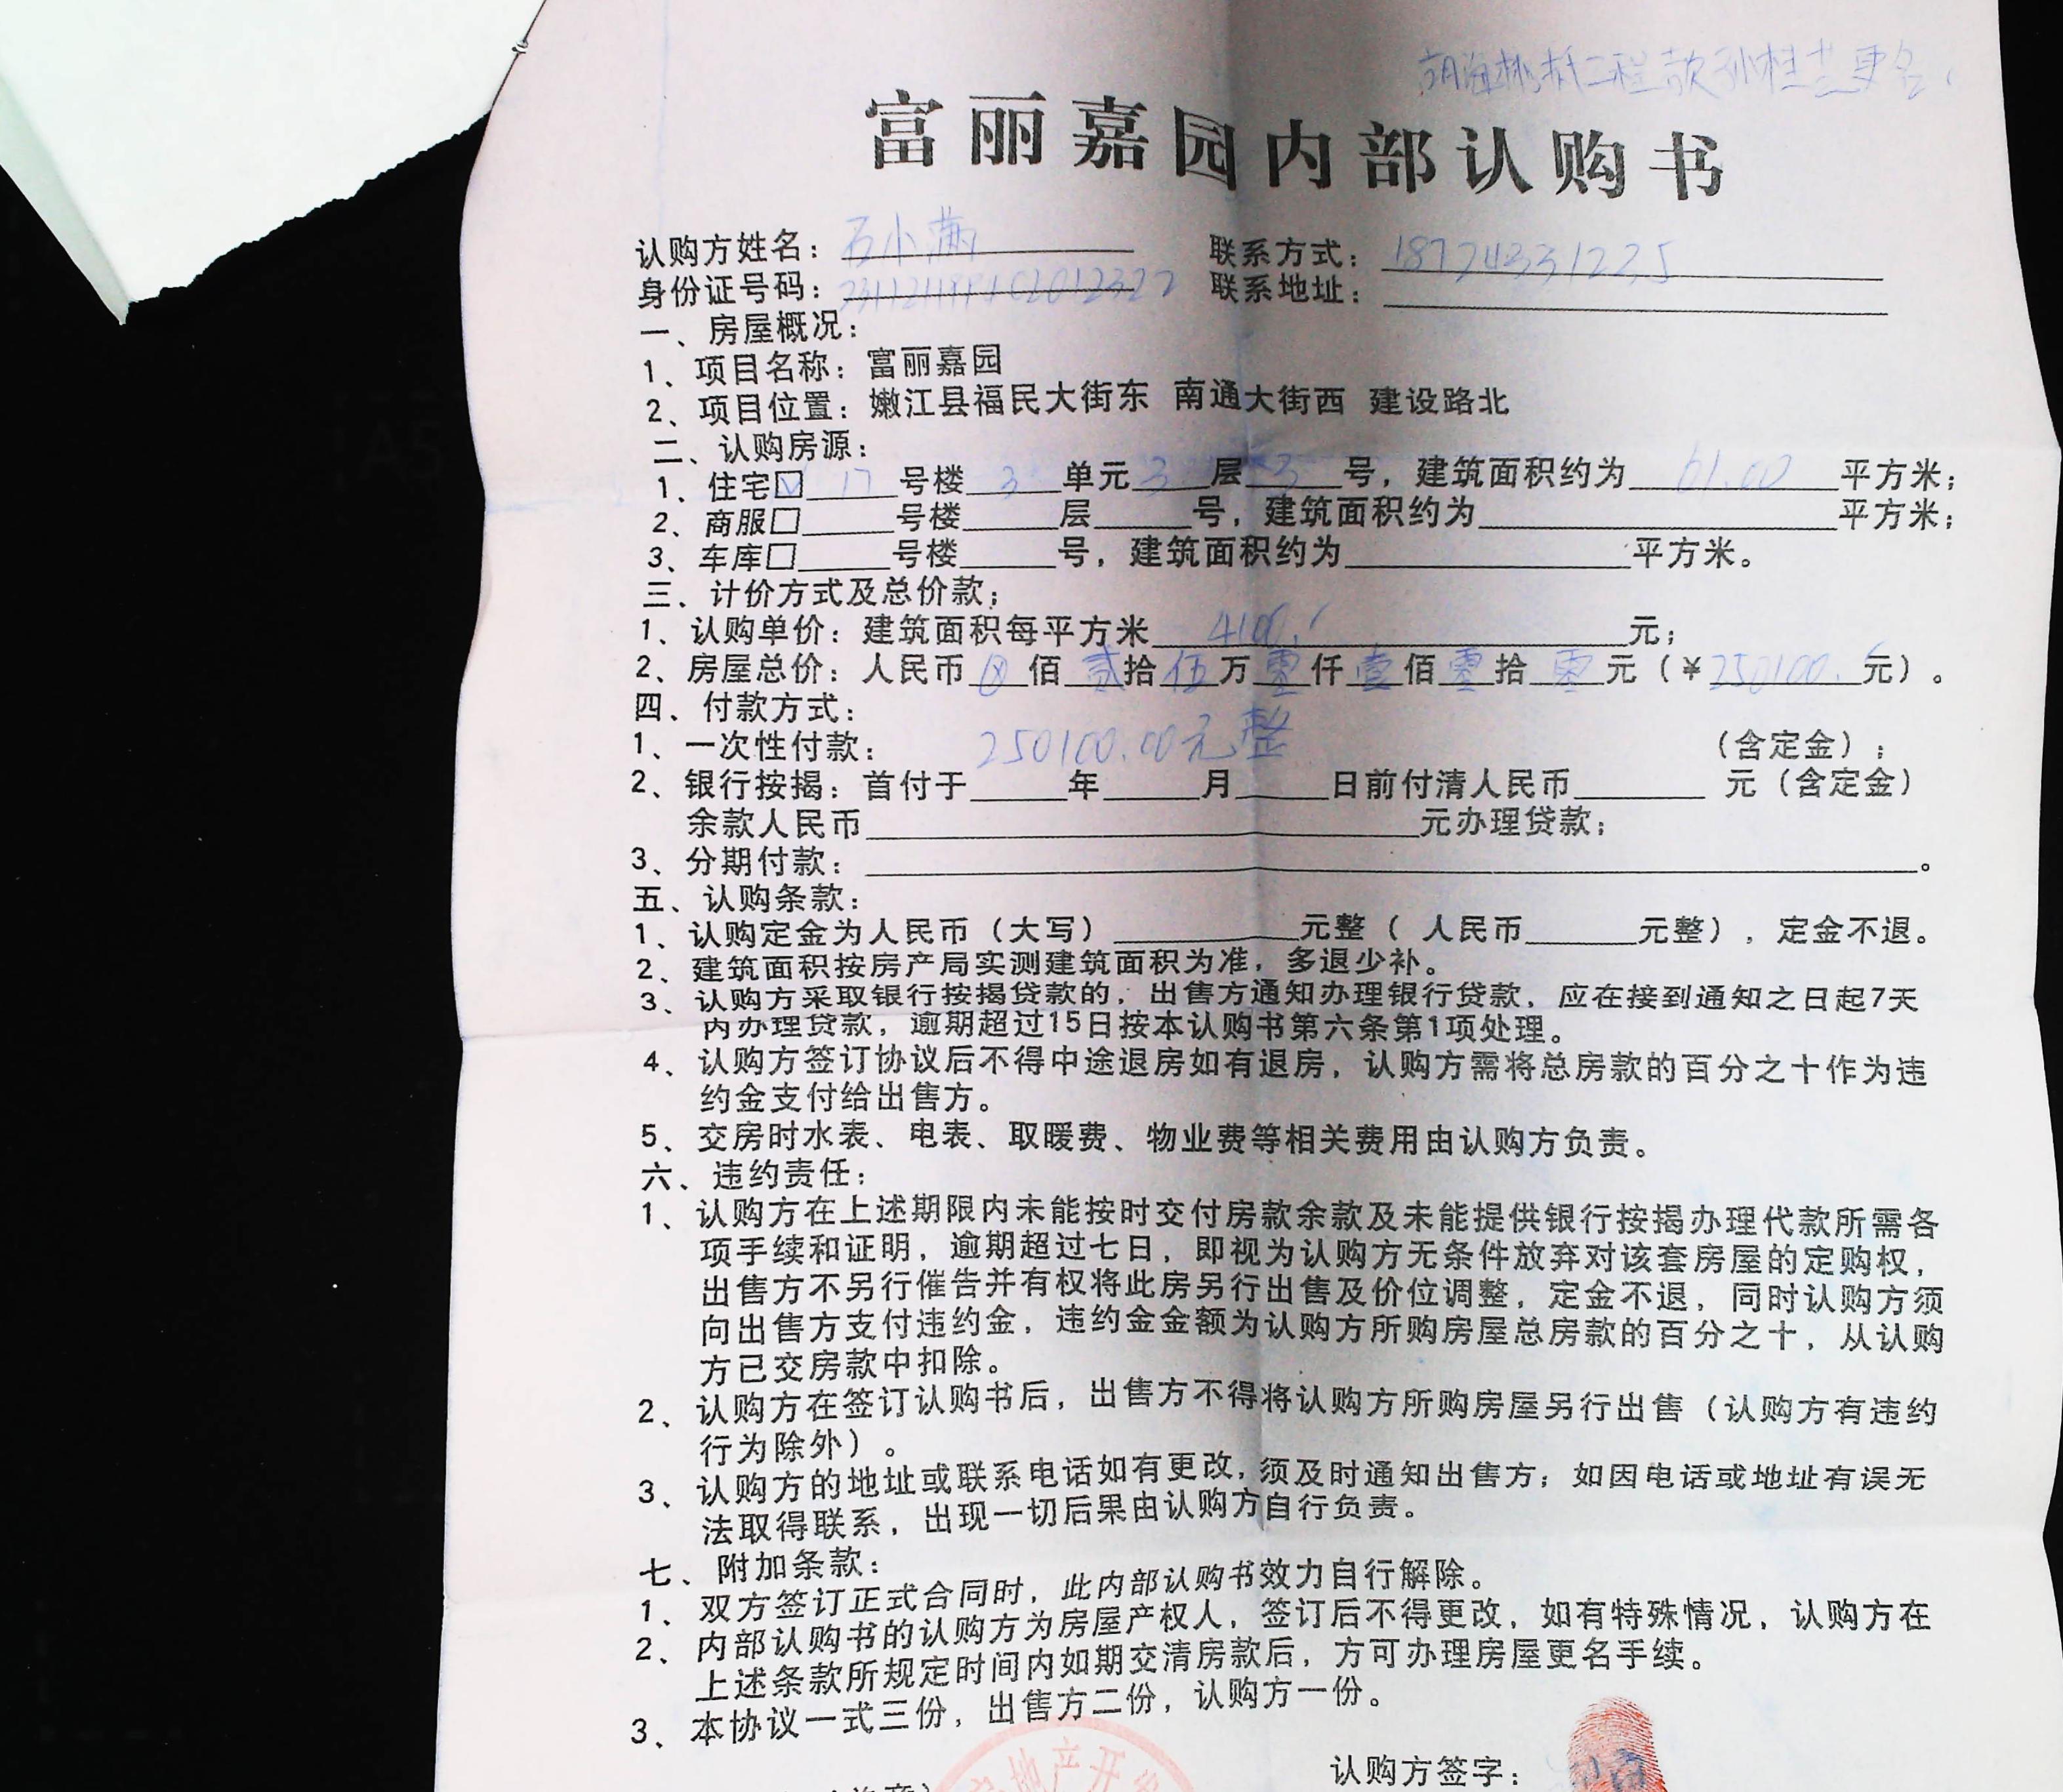 富丽嘉园内部认购书
认购方姓名：石小满 联系方式：18724331225
身份证号码： 联系地址：
一、房屋概况：
1、项目名称：富丽嘉园
2、项目位置：嫩江县福民大街东 南通大街西 建设路北
二、认购房源：
1、住宅☑ 17 号楼 3 单元 3 层 3 号，建筑面积约为 61.00 平方米；
2、商服□____号楼____层____号，建筑面积约为____平方米；
3、车库□____号楼____号，建筑面积约为____平方米。
三、计价方式及总价款；
1、认购单价：建筑面积每平方米 4100. 元；
2、房屋总价：人民币 ⊗ 佰 贰 拾 伍 万 零 仟 壹 佰 零 拾 零 元（¥250100. 元）。
四、付款方式：
1、一次性付款： 250100.00元整 （含定金）；
2、银行按揭：首付于____年____月____日前付清人民币____ 元（含定金）
余款人民币____元办理贷款；
3、分期付款：____。
五、认购条款：
1、认购定金为人民币（大写）____元整（ 人民币____元整），定金不退。
2、建筑面积按房产局实测建筑面积为准，多退少补。
3、认购方采取银行按揭贷款的，出售方通知办理银行贷款，应在接到通知之日起7天
内办理贷款，逾期超过15日按本认购书第六条第1项处理。
4、认购方签订协议后不得中途退房如有退房，认购方需将总房款的百分之十作为违
约金支付给出售方。
5、交房时水表、电表、取暖费、物业费等相关费用由认购方负责。
六、违约责任：
1、认购方在上述期限内未能按时交付房款余款及未能提供银行按揭办理代款所需各
项手续和证明，逾期超过七日，即视为认购方无条件放弃对该套房屋的定购权，
出售方不另行催告并有权将此房另行出售及价位调整，定金不退，同时认购方须
向出售方支付违约金，违约金金额为认购方所购房屋总房款的百分之十，从认购
方已交房款中扣除。
2、认购方在签订认购书后，出售方不得将认购方所购房屋另行出售（认购方有违约
行为除外）。
3、认购方的地址或联系电话如有更改，须及时通知出售方；如因电话或地址有误无
法取得联系，出现一切后果由认购方自行负责。
七、附加条款：
1、双方签订正式合同时，此内部认购书效力自行解除。
2、内部认购书的认购方为房屋产权人，签订后不得更改，如有特殊情况，认购方在
上述条款所规定时间内如期交清房款后，方可办理房屋更名手续。
3、本协议一式三份，出售方二份，认购方一份。
地产开
认购方签字：